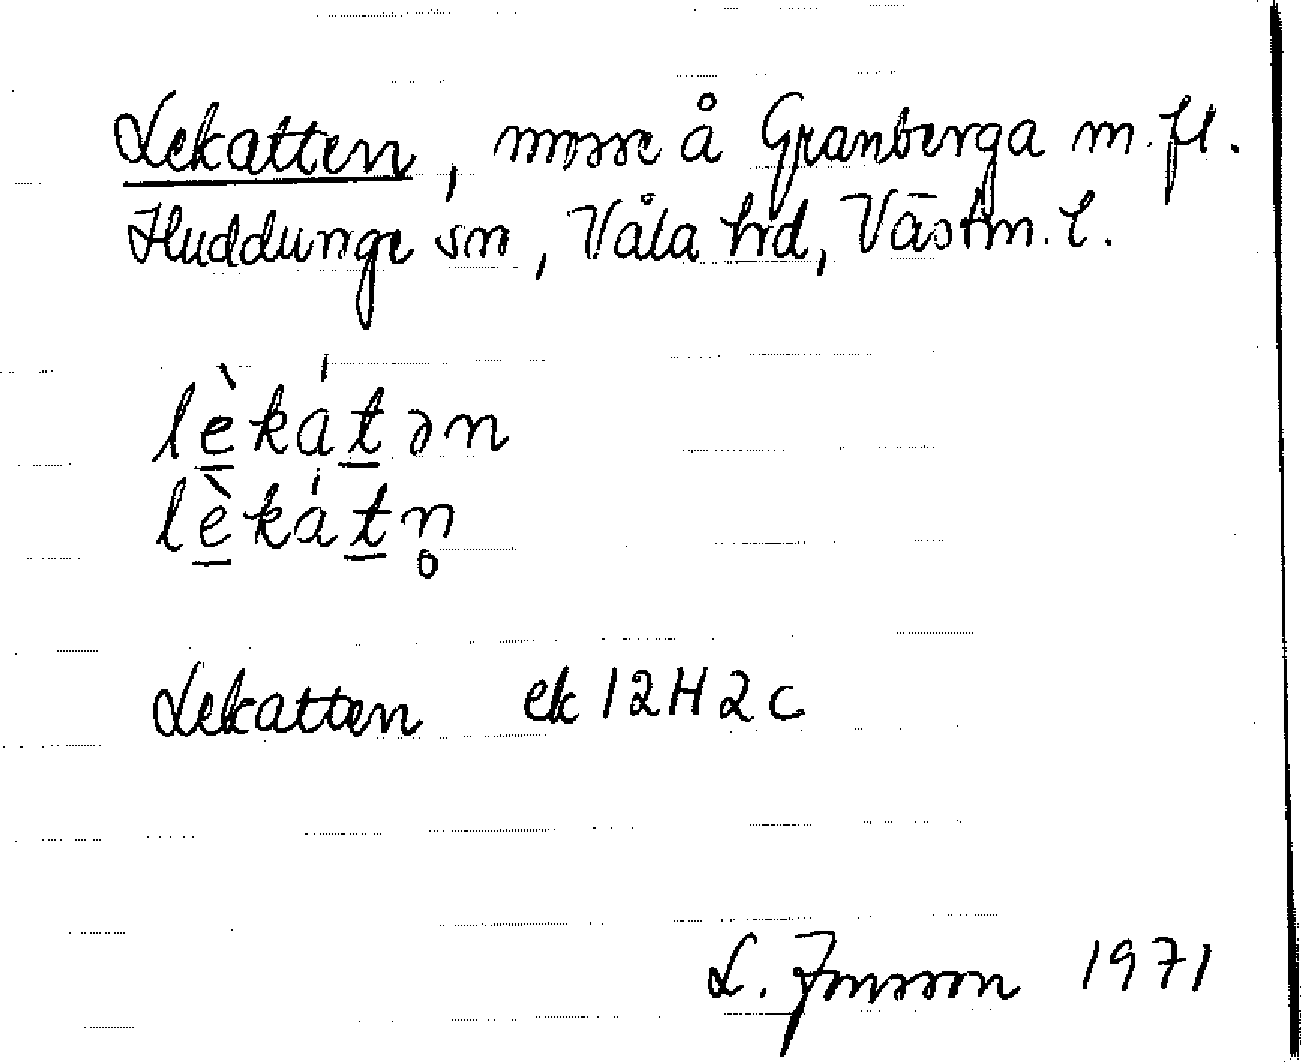 Lekatten, mosse å Granberga m.fl.
Huddunge sn, Våla hd, Västm. l.
lè̱ká́ṯən
lè̱ká́ṯn̥
Lekatten ek 12H2c
L. Jonsson 1971